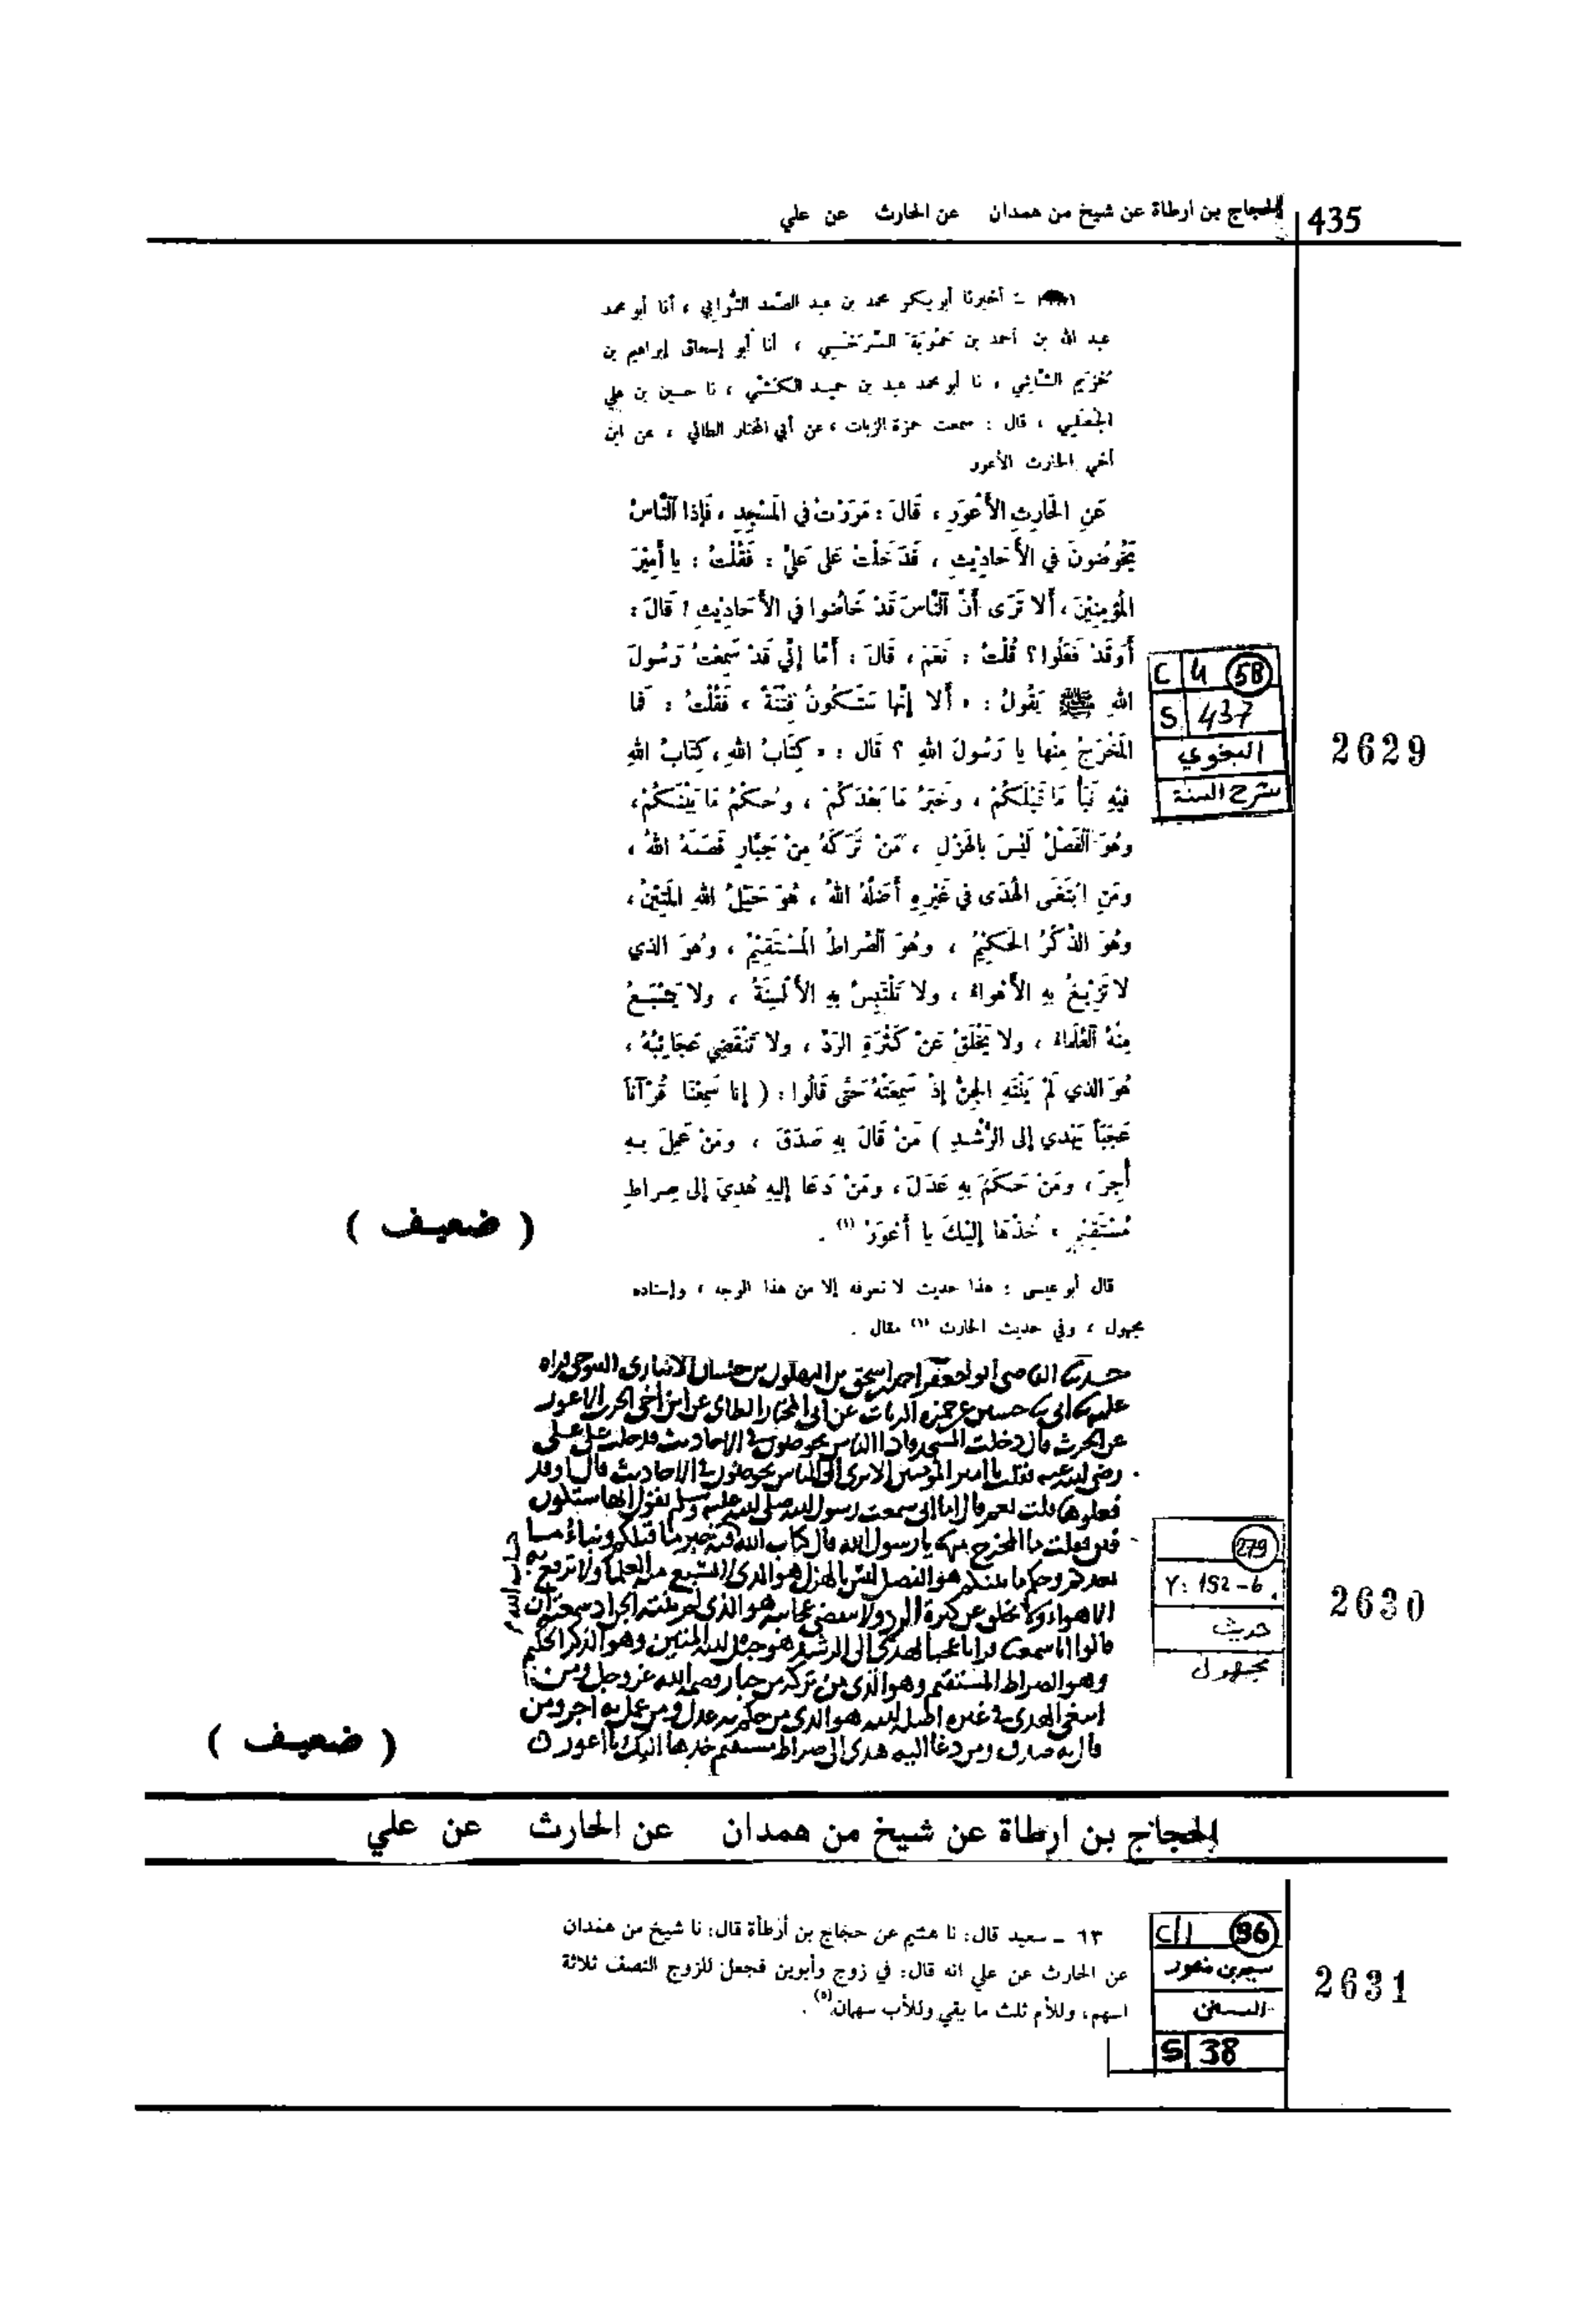 435
الحجاج بن ارطاة عن شيخ من همدان عن الحارث عن علي
ـ أخبرنا أبو بكر محمد بن عبد الصمد التّرابي ، أنا أبو محمد
عبد الله بن أحمد بن حَمُّويَة السَّرَخسي ، أنا أبو إسحاق إبراهيم بن
خُزَيم الشّاشي ، نا أبو محمد عبد بن حميد الكَشّي ، نا حسين بن علي
الجُعفي ، قال : سمعت حمزة الزيات ، عن أبي المختار الطائي ، عن ابن
أخي الحارث الأعور
عَنِ الحَارِثِ الأَعْوَرِ ، قَالَ : مَرَرْتُ في المَسْجِدِ ، فَإذا النَّاسُ
يَخُوضُونَ في الأَحَادِيْثِ ، فَدَخَلْتُ عَلى عَليٍّ : فَقُلْتُ : يا أَمِيْرَ
المُؤْمِنِيْنَ ، أَلا تَرَى أَنَّ النَّاسَ قَدْ خَاضُوا في الأَحَادِيْثِ ! قَالَ :
أَوَقَدْ فَعَلُوا ؟ قُلْتُ : نَعَمْ ، قَالَ : أَمَا إنِّي قَدْ سَمِعْتُ رَسُولَ
اللهِ ﷺ يَقُولُ : « أَلا إنَّها سَتَكُونُ فِتْنَةٌ » فَقُلْتُ : فَما
المَخْرَجُ مِنْها يا رَسُولَ اللهِ ؟ قَال : « كِتَابُ اللهِ ، كِتَابُ اللهِ
فِيْهِ نَبَأُ مَا قَبْلَكُمْ ، وَخَبَرُ مَا بَعْدَكُمْ ، وَحُكْمُ مَا بَيْنَكُمْ ،
وَهُوَ الفَصْلُ لَيْسَ بِالهَزْلِ ، مَنْ تَرَكَهُ مِنْ جَبَّارٍ قَصَمَهُ اللهُ ،
وَمَنِ ابْتَغَى الهُدَى في غَيْرِهِ أَضَلَّهُ اللهُ ، هُوَ حَبْلُ اللهِ المَتِيْنُ ،
وَهُوَ الذِّكْرُ الحَكِيْمُ ، وَهُوَ الصِّراطُ المُسْتَقِيْمُ ، وَهُوَ الذي
لا تَزِيْغُ بِهِ الأَهْوَاءُ ، ولا تَلْتَبِسُ بِهِ الأَلْسِنَةُ ، ولا يَشْبَعُ
مِنْهُ العُلَمَاءُ ، ولا يَخْلَقُ عَنْ كَثْرَةِ الرَّدِّ ، ولا تَنْقَضِي عَجَائِبُهُ ،
هُوَ الذي لَمْ يَنْتَهِ الجِنُّ إذْ سَمِعَتْهُ حَتَّى قَالُوا : ( إنا سَمِعْنَا قُرْآناً
عَجَبَاً يَهْدي إلى الرُّشْدِ ) مَنْ قَالَ بِهِ صَدَقَ ، ومَنْ عَمِلَ بِهِ
أُجِرَ ، ومَنْ حَكَمَ بِهِ عَدَلَ ، ومَنْ دَعَا إليهِ هُدِيَ إلى صِراطٍ
مُسْتَقِيْمٍ ، خُذْهَا إلَيْكَ يا أَعْوَرُ (١) .
( ضعيف )
C 4 58
S 437
البغوي
شرح السنة
2629
قال أبو عيسى : هذا حديث لا نعرفه إلا من هذا الوجه ، وإسناده
مجهول ، وفي حديث الحارث (١) مقال .
عن الحرث قال دخلت المسجد واذا الناس يخوضون في الاحاديث فدخلت على علي
رضي الله عنه فقلت يا امير المومنين الا ترى الى الناس يخوضون في الاحاديث قال اوقد
فعلوها قلت نعم قال اما اني سمعت رسول الله صلى الله عليه وسلم يقول انها ستكون
فتن فقلت ما المخرج منها يا رسول الله قال كتاب الله فيه خبر ما قبلكم ونباء ما
بعدكم وحكم ما بينكم هو الفصل ليس بالهزل هو الذي لا تشبع منه العلماء ولا تزيغ به
الاهواء ولا يخلق عن كثرة الرد ولا تنقضي عجايبه هو الذي
قالوا انا سمعنا قرانا عجبا يهدي الى الرشد هو حبل الله المتين وهو الذكر الحكيم
وهو الصراط المستقيم وهو الذي من تركه من جبار قصمه الله عز وجل ومن
ابتغى الهدى في غيره اضله الله هو الذي من حكم به عدل ومن عمل به اجر ومن
قال به صدق ومن دعا اليه هدي الى صراط مستقيم خذها اليك يا اعور
( ضعيف )
279
Y: 152-6
حديث
مجهول
2630
الحجاج بن ارطاة عن شيخ من همدان عن الحارث عن علي
٦٣ ـ سعيد قال: نا هشيم عن حجاج بن أرطأة قال: نا شيخ من همدان
عن الحارث عن علي انه قال: في زوج وأبوين فجعل للزوج النصف ثلاثة
اسهم، وللأم ثلث ما بقي وللأب سهمان(٥) .
C/1 96
سعيد بن منصور
السنن
S 38
2631